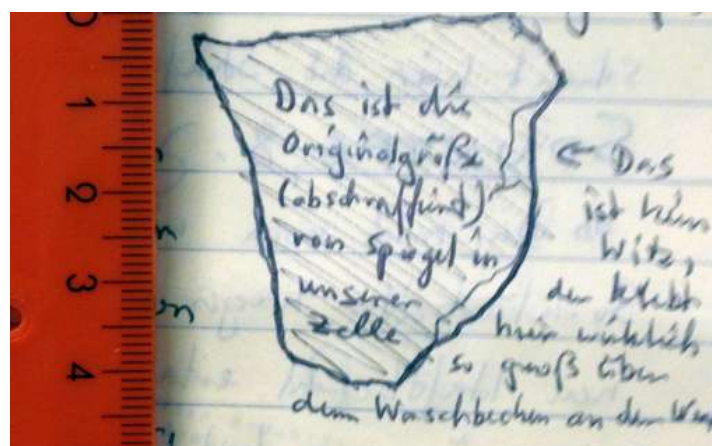 0
1
2
3
4
Das ist die
Originalgröße
(abschraffiert)
vom Spiegel in
unserer
Zelle
← Das
ist kein
Witz,
der klebt
hier wirklich
so groß über
dem Waschbecken an der